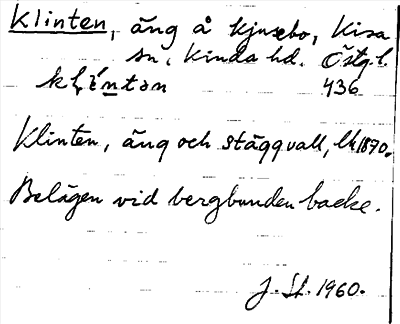 Klinten, äng å Kjusebo, Kisa
sn, Kinda hd. Östg.l.
436
Klinten, äng och stäggvall, lk 1870.
Belägen vid bergbunden backe.
J. St. 1960.